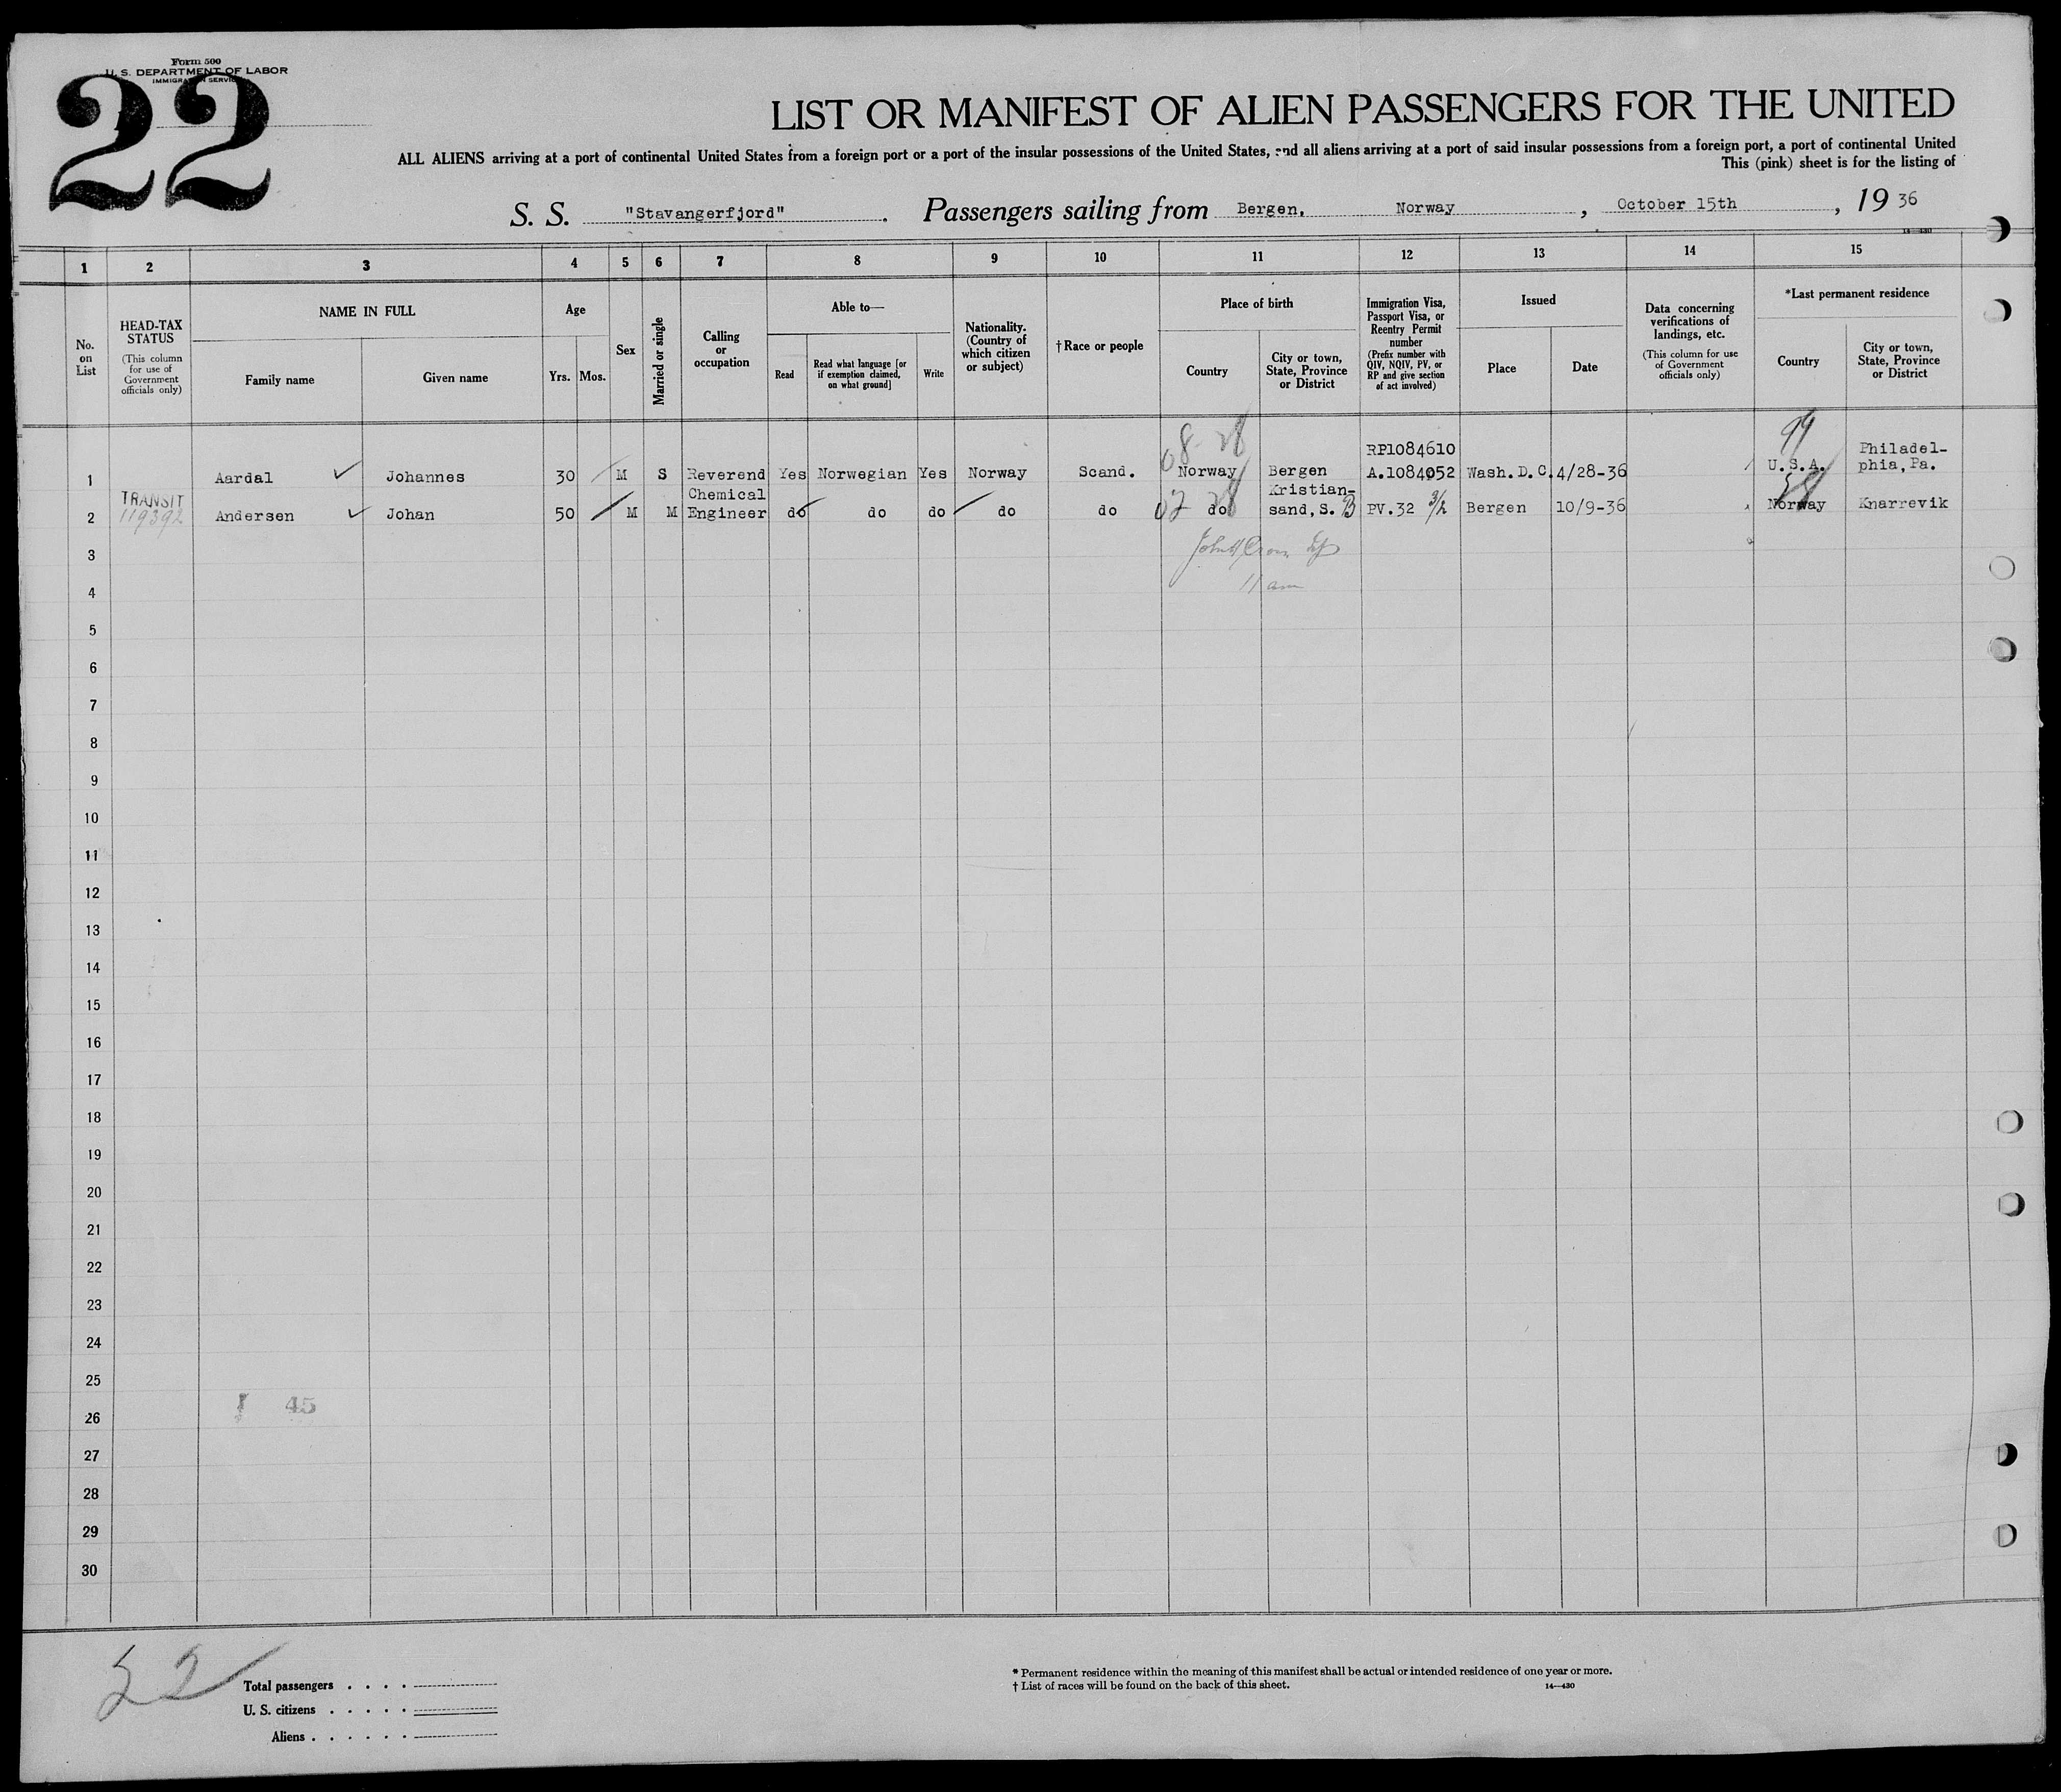 Form 500
U. S. DEPARTMENT OF LABOR
IMMIGRATION SERVICE
22
LIST OR MANIFEST OF ALIEN PASSENGERS FOR THE UNITED
ALL ALIENS arriving at a port of continental United States from a foreign port or a port of the insular possessions of the United States, and all aliens arriving at a port of said insular possessions from a foreign port, a port of continental United
This (pink) sheet is for the listing of
S. S. "Stavangerfjord" . Passengers sailing from Bergen, Norway , October 15th , 19 36
14—430
1 2 3 4 5 6 7 8 9 10 11 12 13 14 15
No. on List
HEAD-TAX STATUS
(This column for use of Government officials only)
NAME IN FULL
Family name
Given name
Age
Yrs. Mos.
Sex
Married or single
Calling or occupation
Able to—
Read
Read what language [or if exemption claimed, on what ground]
Write
Nationality. (Country of which citizen or subject)
† Race or people
Place of birth
Country
City or town, State, Province or District
Immigration Visa, Passport Visa, or Reentry Permit number
(Prefix number with QIV, NQIV, PV, or RP and give section of act involved)
Issued
Place
Date
Data concerning verifications of landings, etc.
(This column for use of Government officials only)
*Last permanent residence
Country
City or town, State, Province or District
08- 28 99
RP1084610 Philadel-
1 Aardal Johannes 30 M S Reverend Yes Norwegian Yes Norway Scand. Norway Bergen A.1084052 Wash.D.C. 4/28-36 U.S.A. phia, Pa.
TRANSIT Chemical Kristian-
2 119392 Andersen Johan 50 M M Engineer do do do do do 02 28 do sand, S. B PV.32 3/2 Bergen 10/9-36 Norway Knarrevik
3
11 am
4
5
6
7
8
9
10
11
12
13
14
15
16
17
18
19
20
21
22
23
24
25
45
26
27
28
29
30
22
Total passengers . . . .
U. S. citizens . . . . .
Aliens . . . . . .
* Permanent residence within the meaning of this manifest shall be actual or intended residence of one year or more.
† List of races will be found on the back of this sheet. 14—430